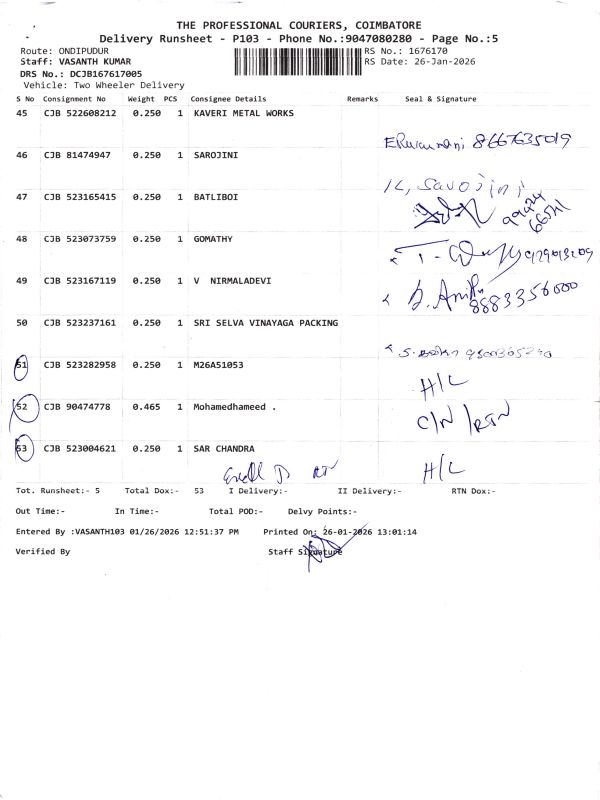 THE PROFESSIONAL COURIERS, COIMBATORE
Delivery Runsheet - P103 - Phone No.:9047080280 - Page No.:5
Route: ONDIPUDUR RS No.: 1676170
Staff: VASANTH KUMAR RS Date: 26-Jan-2026
DRS No.: DCJB167617005
Vehicle: Two Wheeler Delivery
S No Consignment No Weight PCS Consignee Details Remarks Seal & Signature
45 CJB 522608212 0.250 1 KAVERI METAL WORKS
8667635019
46 CJB 81474947 0.250 1 SAROJINI
Sarojini
47 CJB 523165415 0.250 1 BATLIBOI
48 CJB 523073759 0.250 1 GOMATHY
49 CJB 523167119 0.250 1 V NIRMALADEVI
8883356000
50 CJB 523237161 0.250 1 SRI SELVA VINAYAGA PACKING
51 CJB 523282958 0.250 1 M26A51053
H/L
52 CJB 90474778 0.465 1 Mohamedhameed .
C/N / RTN
53 CJB 523004621 0.250 1 SAR CHANDRA
H/L
Tot. Runsheet:- 5 Total Dox:- 53 I Delivery:- II Delivery:- RTN Dox:-
Out Time:- In Time:- Total POD:- Delvy Points:-
Entered By :VASANTH103 01/26/2026 12:51:37 PM Printed On: 26-01-2026 13:01:14
Verified By Staff Signature